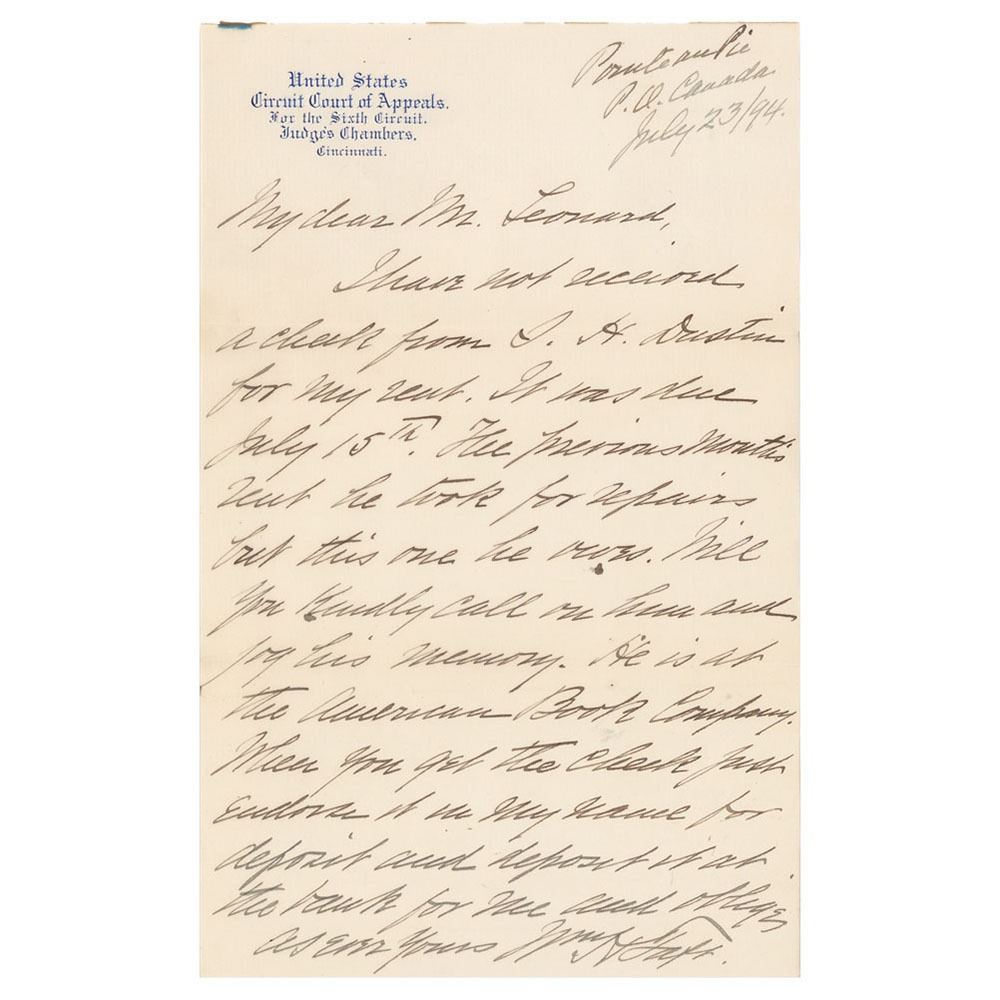 United States
Circuit Court of Appeals.
For the Sixth Circuit.
Judge's Chambers.
Cincinnati.
Pointe au Pic
P.Q. Canada
July 23/94.
My dear Mr. Leonard,
I have not received
a check from S. H. Dustin
for my rent. It was due
July 15th. The previous month's
rent he took for repairs
but this one he owes. Will
you kindly call on him and
jog his memory. He is at
the American Book Company.
When you get the check just
endorse it in my name for
deposit and deposit it at
the bank for me and oblige
as ever yours Wm H Taft.